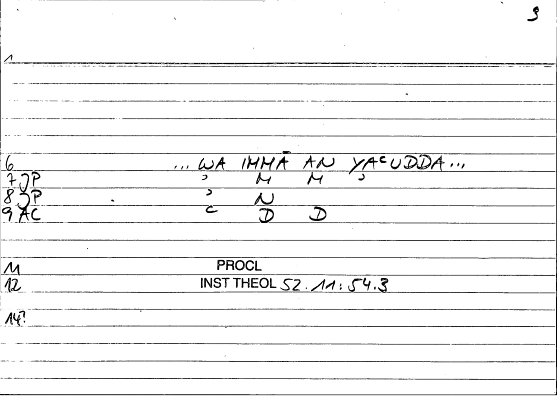 9
1
6 ... WA IMMĀ AN YAᶜUDDA ...
7 JP ʾ M M ʾ
8 JP ʾ N
9 AC ᶜ D D
11 PROCL
12 INST THEOL 52.11:54.3
14?